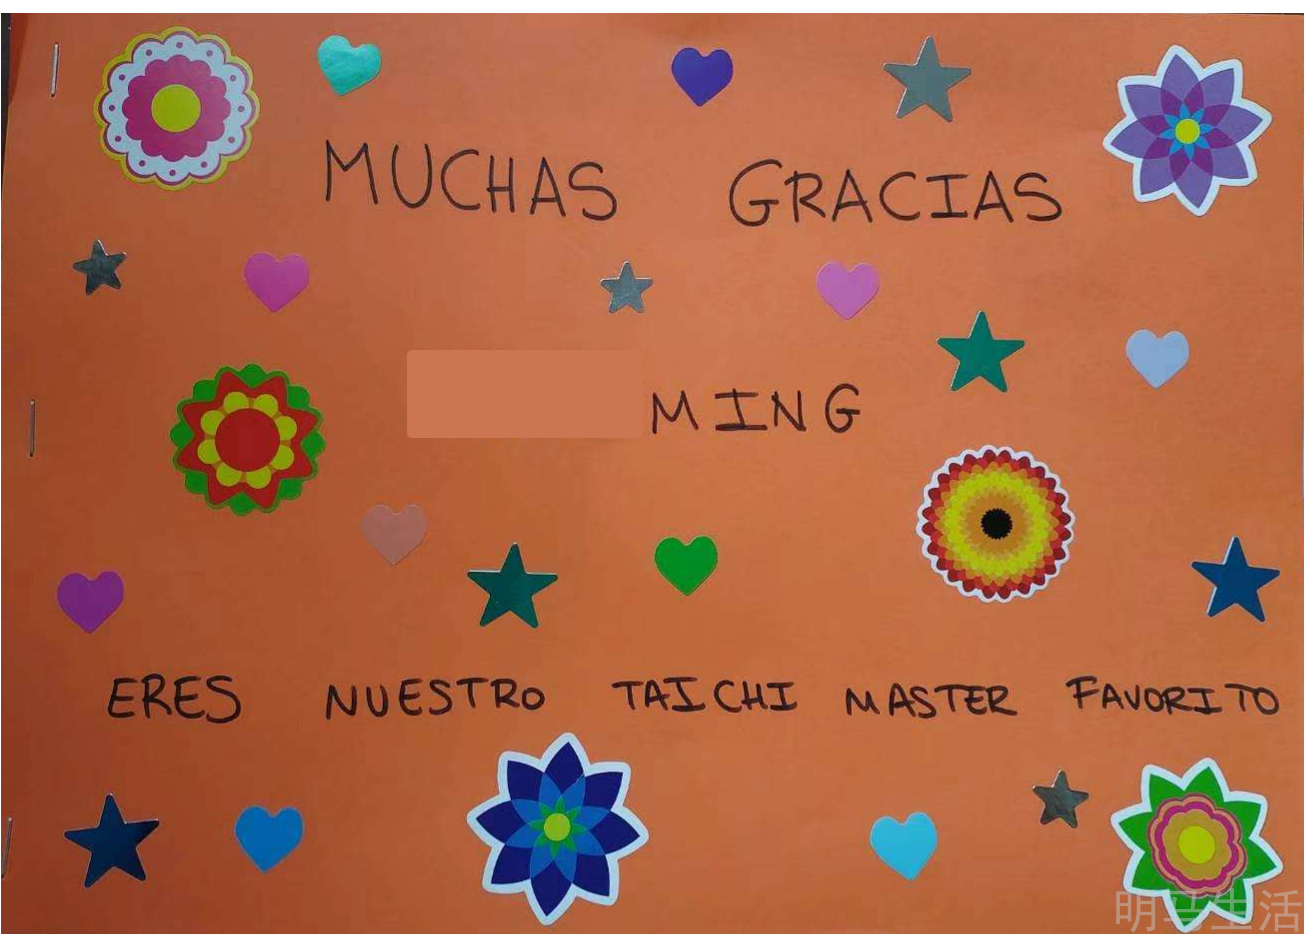 MUCHAS GRACIAS
MING
ERES NUESTRO TAICHI MASTER FAVORITO
明马生活